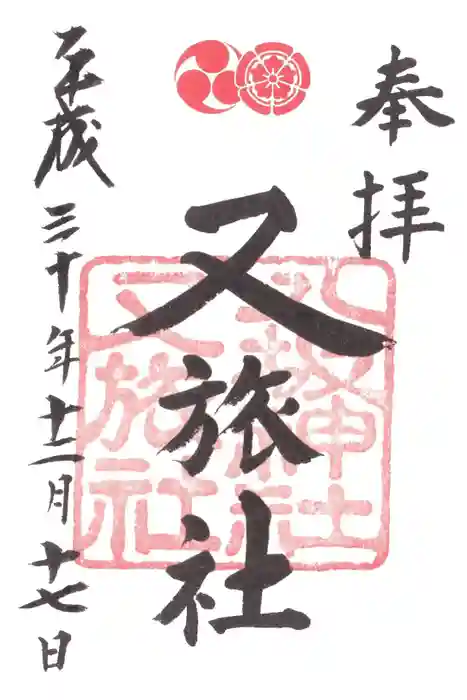 奉拝
又旅社
平成三十年十二月十七日
八坂神社
又旅社